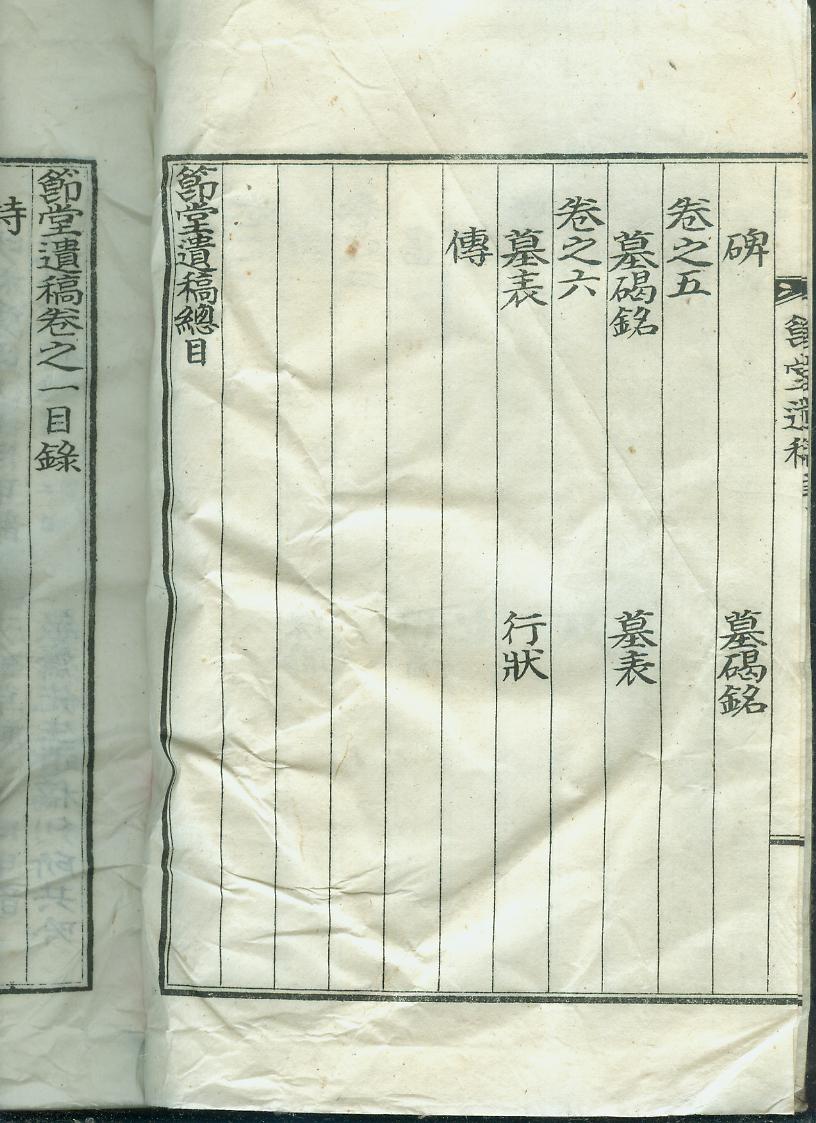 節堂遺稿
碑 墓碣銘
卷之五
墓碣銘 墓表
卷之六
墓表 行狀
傳
節堂遺稿總目
節堂遺稿卷之一目錄
詩